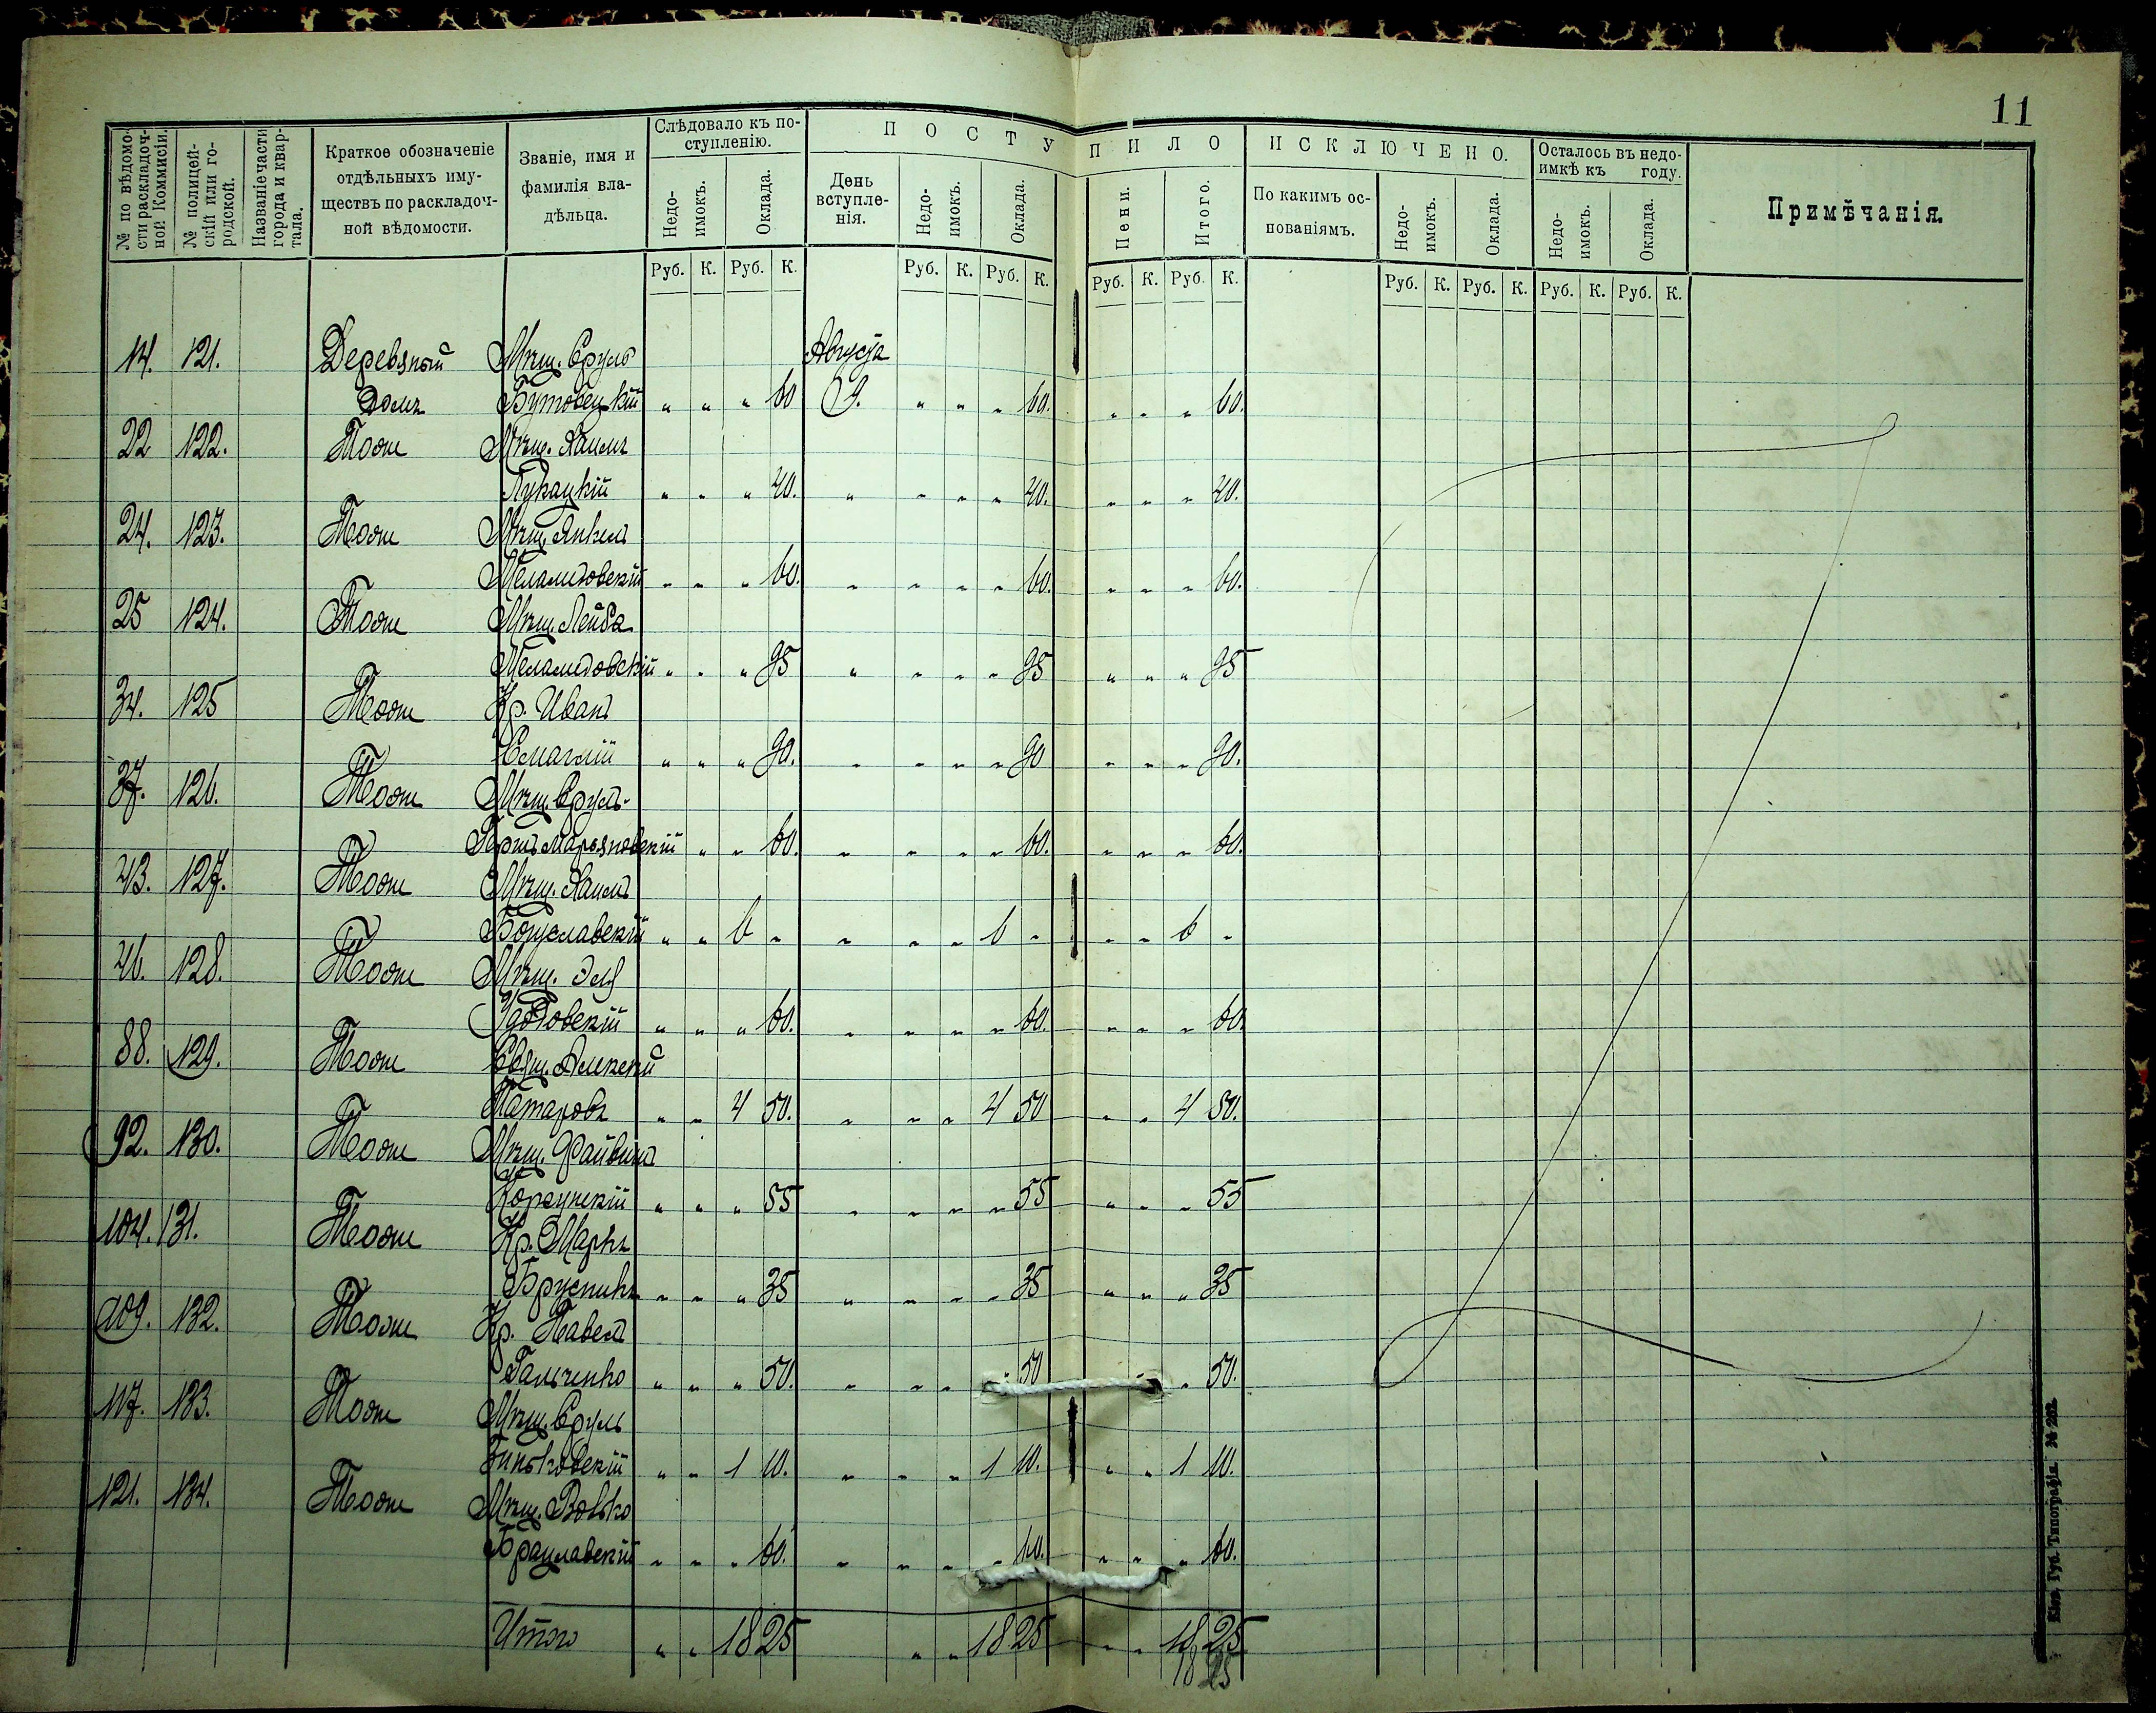 11
№ по вѣдомости раскладочной Коммисіи.
№ полицейскій или городской.
Названіе части города и квартала.
Краткое обозначеніе отдѣльныхъ имуществъ по раскладочной вѣдомости.
Званіе, имя и фамилія владѣльца.
Слѣдовало къ поступленію.
Недоимокъ. Оклада.
ПОСТУПИЛО
День вступленія. Недоимокъ. Оклада. Пени. Итого.
ИСКЛЮЧЕНО.
По какимъ основаніямъ. Недоимокъ. Оклада.
Осталось въ недоимкѣ къ году.
Недоимокъ. Оклада.
Примѣчанія.
Руб. К. Руб. К. Руб. К. Руб. К. Руб. К. Руб. К. Руб. К. Руб. К. Руб. К. Руб. К.
14. 121. Деревяный Мѣщ. Сруль Августа
Домъ Бутовецкій " " " 60 9. " " " 60. " " " 60.
22 122. Тоже Мѣщ. Хаимъ
Лукацкій " " " 40. " " " " 40. " " " 40.
24. 123. Тоже Мѣщ. Янкель
Меламидовскій " " " 60. " " " " 60. " " " 60.
25 124. Тоже Мѣщ. Лейба
Меламидовскій " " " 95 " " " " 95 " " " 95
34. 125 Тоже Кр. Иванъ
" " " 90. " " " " 90 " " " 90.
37. 126. Тоже Мѣщ. Сруль-
Гершъ Марьяновскій " " 60. " " " " 60. " " " 60.
43. 127. Тоже Мѣщ. Хаимъ
Богуславскій " " 6 " " " " 6 " " " 6 "
46. 128. Тоже Мѣщ. Эля
" " " 60. " " " " 60. " " " 60
88. 129. Тоже Свящ. Алексей
" " 4 50. " " " 4 50 " " 4 50.
92. 130. Тоже Мѣщ. Файвишъ
Корсунскій " " " 55 " " " " 55 " " " 55
104. 131. Тоже Кр. Маркъ
" " " 35 " " " " 35 " " " 35
109. 132. Тоже Кр. Павелъ
Гальченко " " " 50. " " " " 50 " " 50.
117. 133. Тоже Мѣщ. Сруль
Биньковскій " " 1 10. " " " 1 10. " " 1 10.
121. 134. Тоже Мѣщ. Волько
Брацлавскій " " " 60. " " " " 60. " " " 60.
Итого " " 18 25 " " 18 25 " " 18 25
18 25
Кіев. Губ. Типографія. № 202